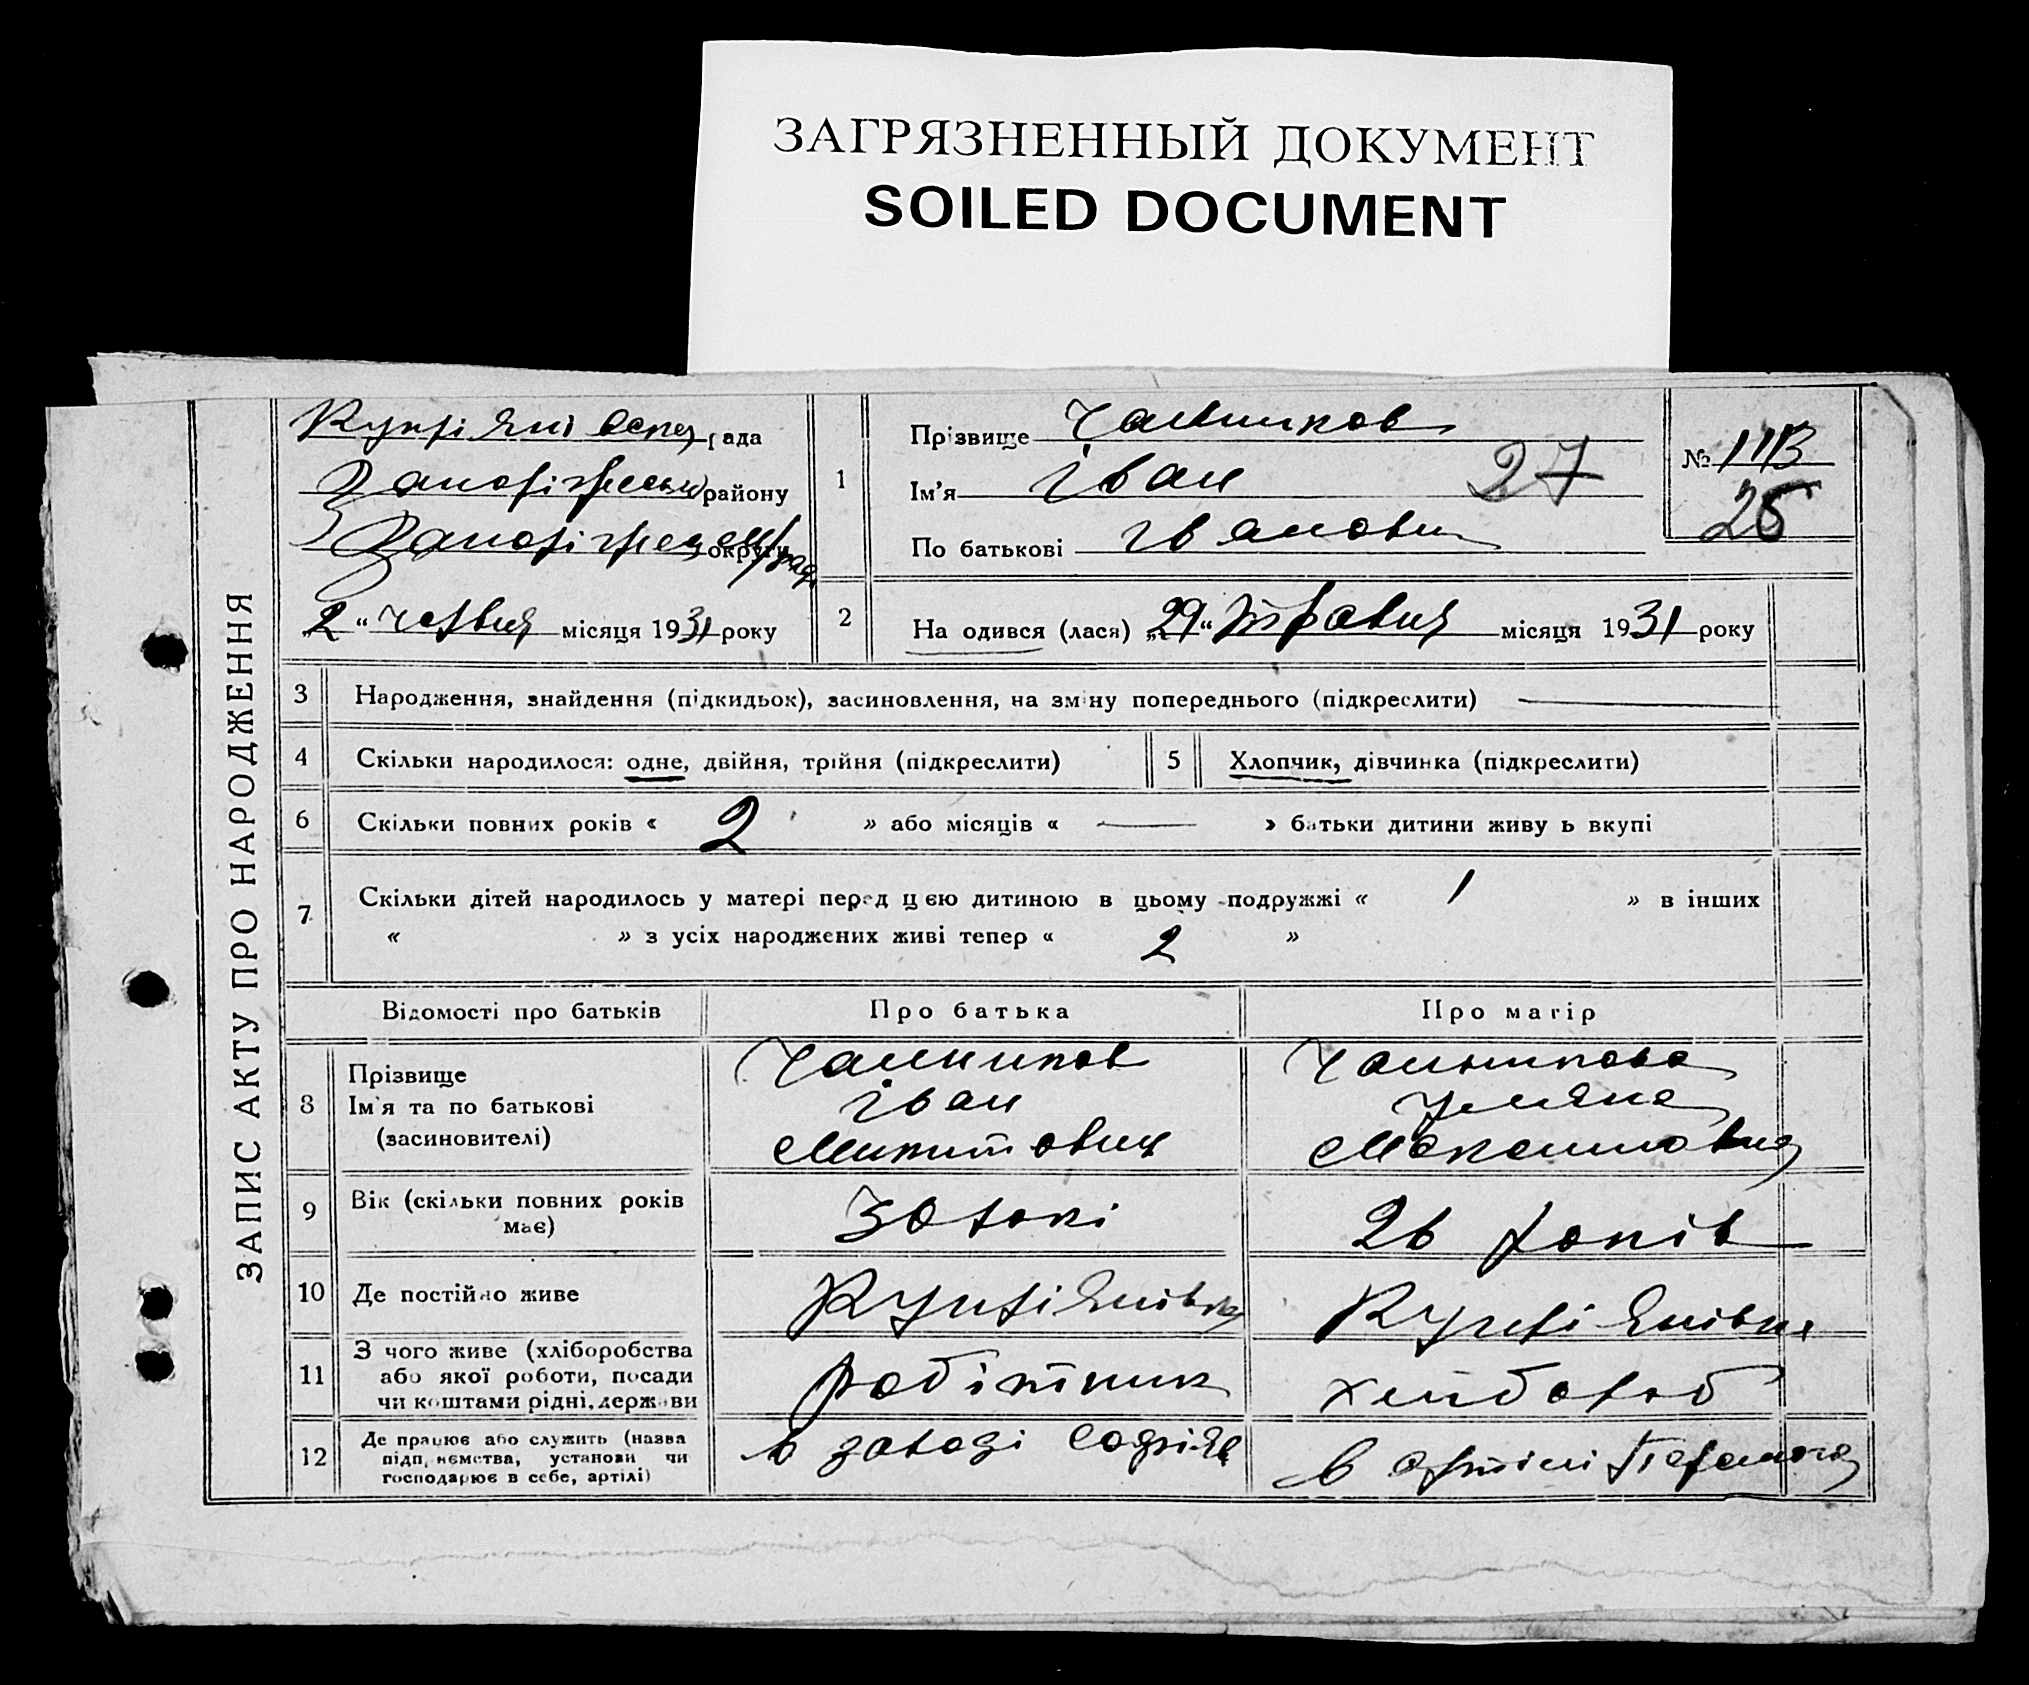 ЗАГРЯЗНЕННЫЙ ДОКУМЕНТ
SOILED DOCUMENT
ЗАПИС АКТУ ПРО НАРОДЖЕННЯ
рада
району
округи
„2“ червня місяця 1931 року
1
Прізвище
Ім'я Іван 27
По батькові Іванович
№
2
На одився (лася) „29“ травня місяця 1931 року
3 Народження, знайдення (підкидьок), засиновлення, на зміну попереднього (підкреслити)
4 Скільки народилося: одне, двійня, трійня (підкреслити) 5 Хлопчик, дівчинка (підкреслити)
6 Скільки повних років « 2 » або місяців « — » батьки дитини живу ь вкупі
7 Скільки дітей народилось у матері перед цією дитиною в цьому подружжі « 1 » в інших
« » з усіх народжених живі тепер « 2 »
Відомості про батьків Про батька Про матір
8 Прізвище
Ім'я та по батькові Іван Уляна
(засиновителі) Микитович Максимовна
9 Вік (скільки повних років має) 30 років 26 років
10 Де постійно живе Купріянівка Купріянівка
11 З чого живе (хліборобства
або якої роботи, посади робітник хлібороб
чи коштами рідні, держави
12 Де працює або служить (назва в заводі в артілі
підприємства, установи чи
господарює в себе, артілі)